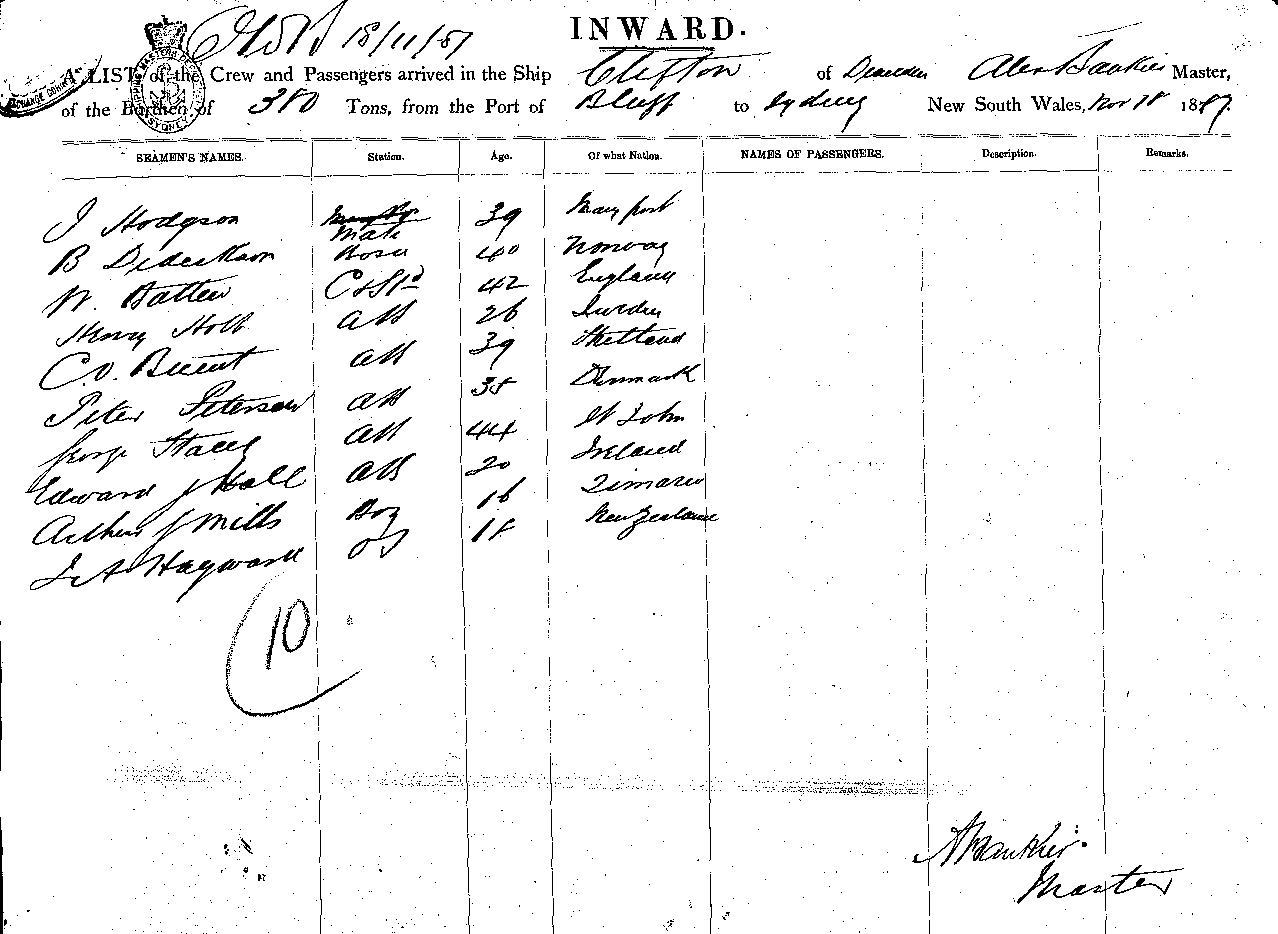 18/11/87
INWARD.
A LIST of the Crew and Passengers arrived in the Ship Clifton of Dunedin Alex Bankier Master,
of the Burthen of 380 Tons, from the Port of Bluff to Sydney New South Wales, Nov 18 1887.
SEAMEN'S NAMES. Station. Age. Of what Nation. NAMES OF PASSENGERS. Description. Remarks.
J Hodgson Mate 39 Maryport
B Dideskson Bosn 40 Norway
W. Batten C & Std 42 England
Henry Holt AB 26 Sweden
C.O. AB 39 Shetland
Peter Petersen AB 38 Denmark
George Stacey AB 44 St John
Edward J Hall AB 20 Ireland
Arthur J Mills Boy 16 Timaru
J A Hayward OS 18 New Zealand
10
A Bankier.
Master
SYDNEY